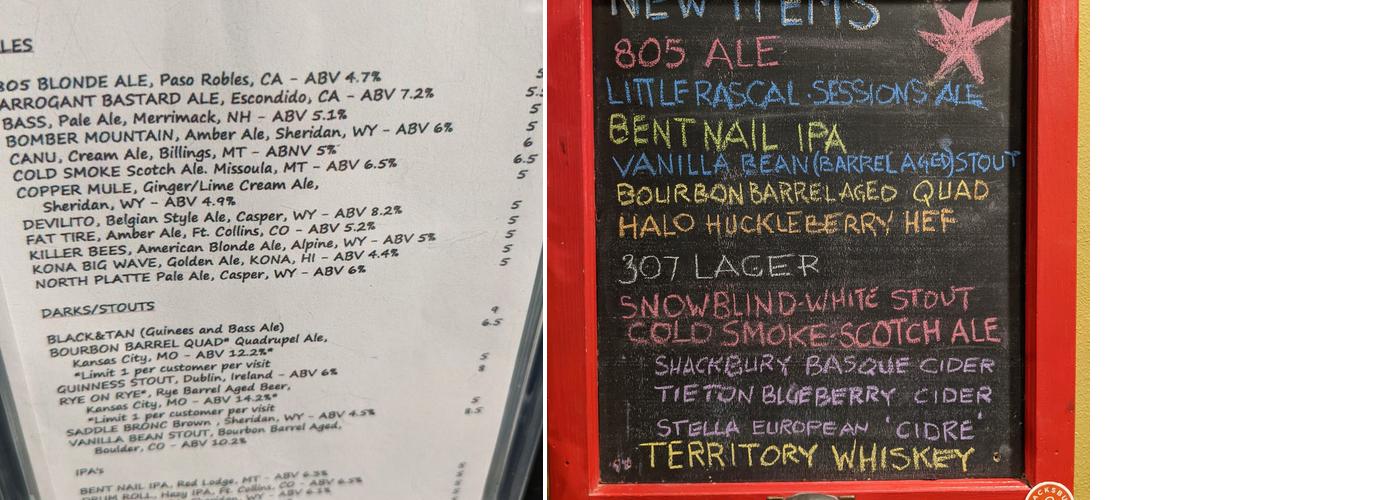 LES
805 BLONDE ALE, Paso Robles, CA - ABV 4.7%
ARROGANT BASTARD ALE, Escondido, CA - ABV 7.2% 5.5
BASS, Pale Ale, Merrimack, NH - ABV 5.1% 5
BOMBER MOUNTAIN, Amber Ale, Sheridan, WY - ABV 6% 5
CANU, Cream Ale, Billings, MT - ABNV 5% 6
COLD SMOKE Scotch Ale. Missoula, MT - ABV 6.5% 6.5
COPPER MULE, Ginger/Lime Cream Ale, 5
Sheridan, WY - ABV 4.9%
DEVILITO, Belgian Style Ale, Casper, WY - ABV 8.2% 5
FAT TIRE, Amber Ale, Ft. Collins, CO - ABV 5.2% 5
KILLER BEES, American Blonde Ale, Alpine, WY - ABV 5% 5
KONA BIG WAVE, Golden Ale, KONA, HI - ABV 4.4% 5
NORTH PLATTE Pale Ale, Casper, WY - ABV 6%
DARKS/STOUTS
BLACK&TAN (Guinees and Bass Ale) 9
BOURBON BARREL QUAD* Quadrupel Ale, 6.5
Kansas City, MO - ABV 12.2%*
*Limit 1 per customer per visit
GUINNESS STOUT, Dublin, Ireland - ABV 6% 5
RYE ON RYE*, Rye Barrel Aged Beer, 8
Kansas City, MO - ABV 14.2%*
*Limit 1 per customer per visit
SADDLE BRONC Brown , Sheridan, WY - ABV 4.5% 5
VANILLA BEAN STOUT, Bourbon Barrel Aged, 8.5
Boulder, CO - ABV 10.2%
IPA's
BENT NAIL IPA, Red Lodge, MT - ABV 6.3%
DRUM ROLL, Hazy IPA, Ft. Collins, CO - ABV 6.5%
NEW ITEMS
805 ALE
LITTLE RASCAL SESSIONS ALE
BENT NAIL IPA
VANILLA BEAN (BARREL AGED) STOUT
BOURBON BARREL AGED QUAD
HALO HUCKLEBERRY HEF
307 LAGER
SNOWBLIND-WHITE STOUT
COLD SMOKE-SCOTCH ALE
SHACKBURY BASQUE CIDER
TIETON BLUEBERRY CIDER
STELLA EUROPEAN 'CIDRE'
TERRITORY WHISKEY